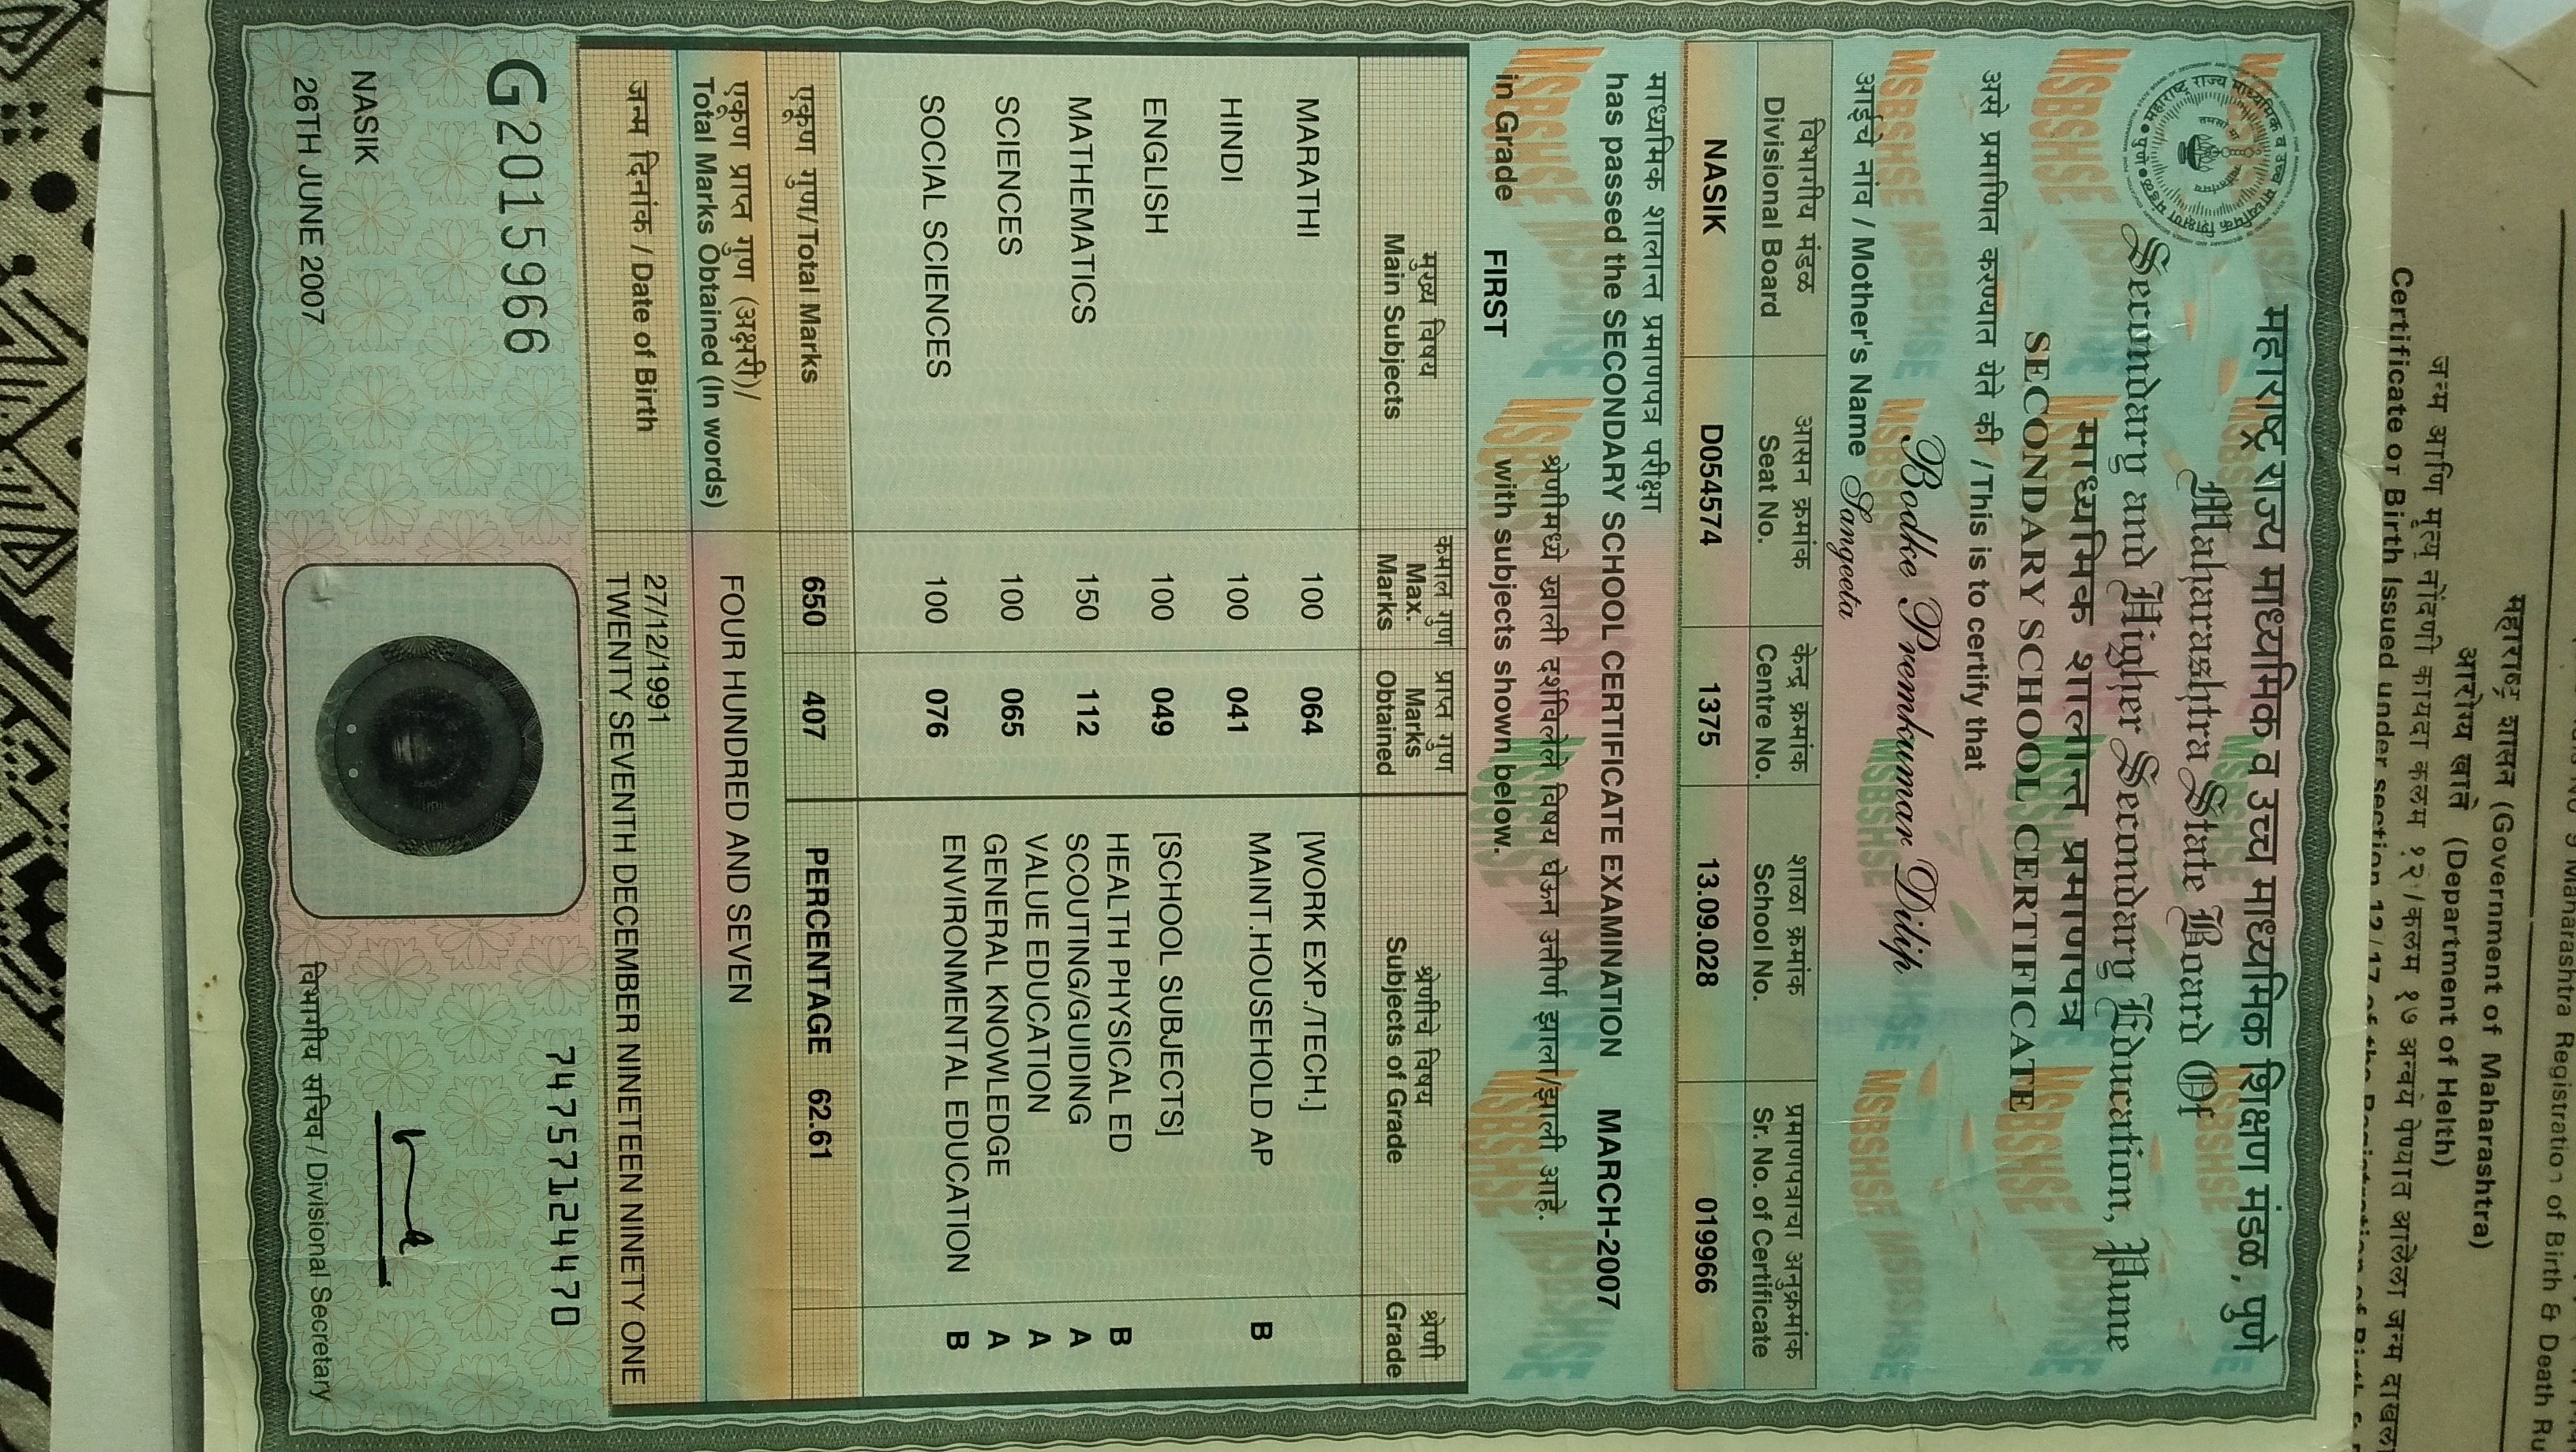 महाराष्ट्र राज्य माध्यमिक व उच्च माध्यमिक शिक्षण मंडळ, पुणे
Maharashtra State Board Of
Secondary and Higher Secondary Education, Pune
माध्यमिक शालान्त प्रमाणपत्र
SECONDARY SCHOOL CERTIFICATE
असे प्रमाणित करण्यात येते की / This is to certify that
Bodke Premkumar Dilip
आईचे नांव / Mother's Name Sangeeta
विभागीय मंडळ आसन क्रमांक केन्द्र क्रमांक शाळा क्रमांक प्रमाणपत्राचा अनुक्रमांक
Divisional Board Seat No. Centre No. School No. Sr. No. of Certificate
NASIK D054574 1375 13.09.028 019966
माध्यमिक शालान्त प्रमाणपत्र परीक्षा
has passed the SECONDARY SCHOOL CERTIFICATE EXAMINATION MARCH-2007
श्रेणीमध्ये खाली दर्शविलेले विषय घेऊन उत्तीर्ण झाला/झाली आहे.
in Grade FIRST with subjects shown below.
मुख्य विषय कमाल गुण प्राप्त गुण श्रेणीचे विषय श्रेणी
Main Subjects Max. Marks Marks Obtained Subjects of Grade Grade
MARATHI 100 064 [WORK EXP./TECH.]
HINDI 100 041 MAINT.HOUSEHOLD AP B
ENGLISH 100 049 [SCHOOL SUBJECTS]
HEALTH PHYSICAL ED B
MATHEMATICS 150 112 SCOUTING/GUIDING A
VALUE EDUCATION A
SCIENCES 100 065 GENERAL KNOWLEDGE A
SOCIAL SCIENCES 100 076 ENVIRONMENTAL EDUCATION B
एकूण गुण/Total Marks 650 407 PERCENTAGE 62.61
एकूण प्राप्त गुण (अक्षरी)/
Total Marks Obtained (In words) FOUR HUNDRED AND SEVEN
जन्म दिनांक / Date of Birth 27/12/1991
TWENTY SEVENTH DECEMBER NINETEEN NINETY ONE
G2015966 7475712447D
NASIK
26TH JUNE 2007
विभागीय सचिव / Divisional Secretary
Maharashtra Registration of Birth & Death Ru
महाराष्ट्र शासन (Government of Maharashtra)
आरोग्य खाते (Department of Helth)
जन्म आणि मृत्यू नोंदणी कायदा कलम १२/कलम १७ अन्वये देण्यात आलेला जन्म दाखला
Certificate or Birth Issued under section 12/17 of the Registration of Birth &